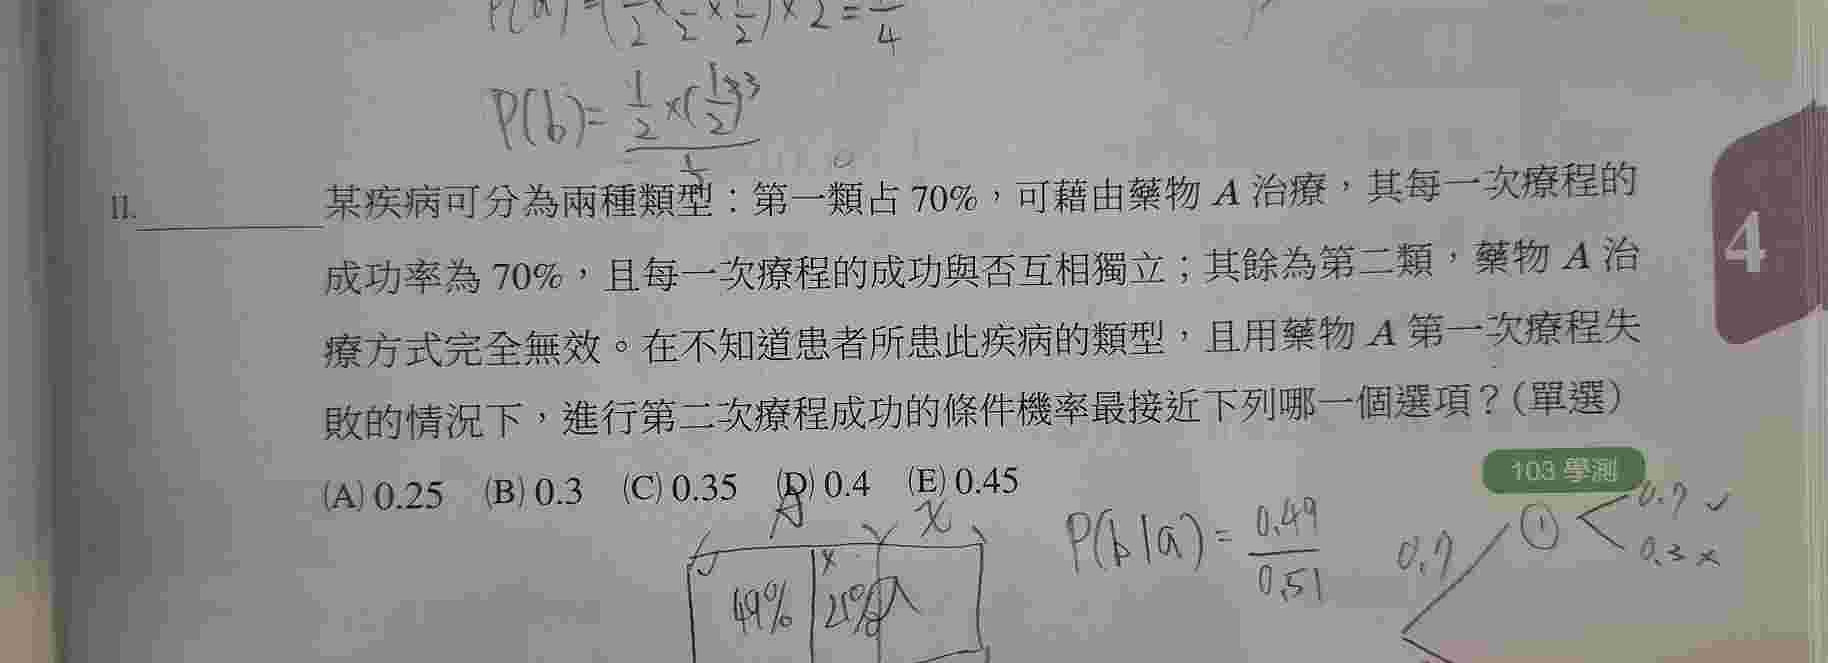 P(a)=(1/2×1/2×1/2)×2=1/4
P(b)=1/2×(1/2)^3
11.
某疾病可分為兩種類型：第一類占 70%，可藉由藥物 A 治療，其每一次療程的
成功率為 70%，且每一次療程的成功與否互相獨立；其餘為第二類，藥物 A 治
療方式完全無效。在不知道患者所患此疾病的類型，且用藥物 A 第一次療程失
敗的情況下，進行第二次療程成功的條件機率最接近下列哪一個選項？(單選)
4
103 學測
(A) 0.25 (B) 0.3 (C) 0.35 (D) 0.4 (E) 0.45
A x
49% 21%
P(b|a)=0.49/0.51
0.7 ① 0.7 ✓
0.3 ×